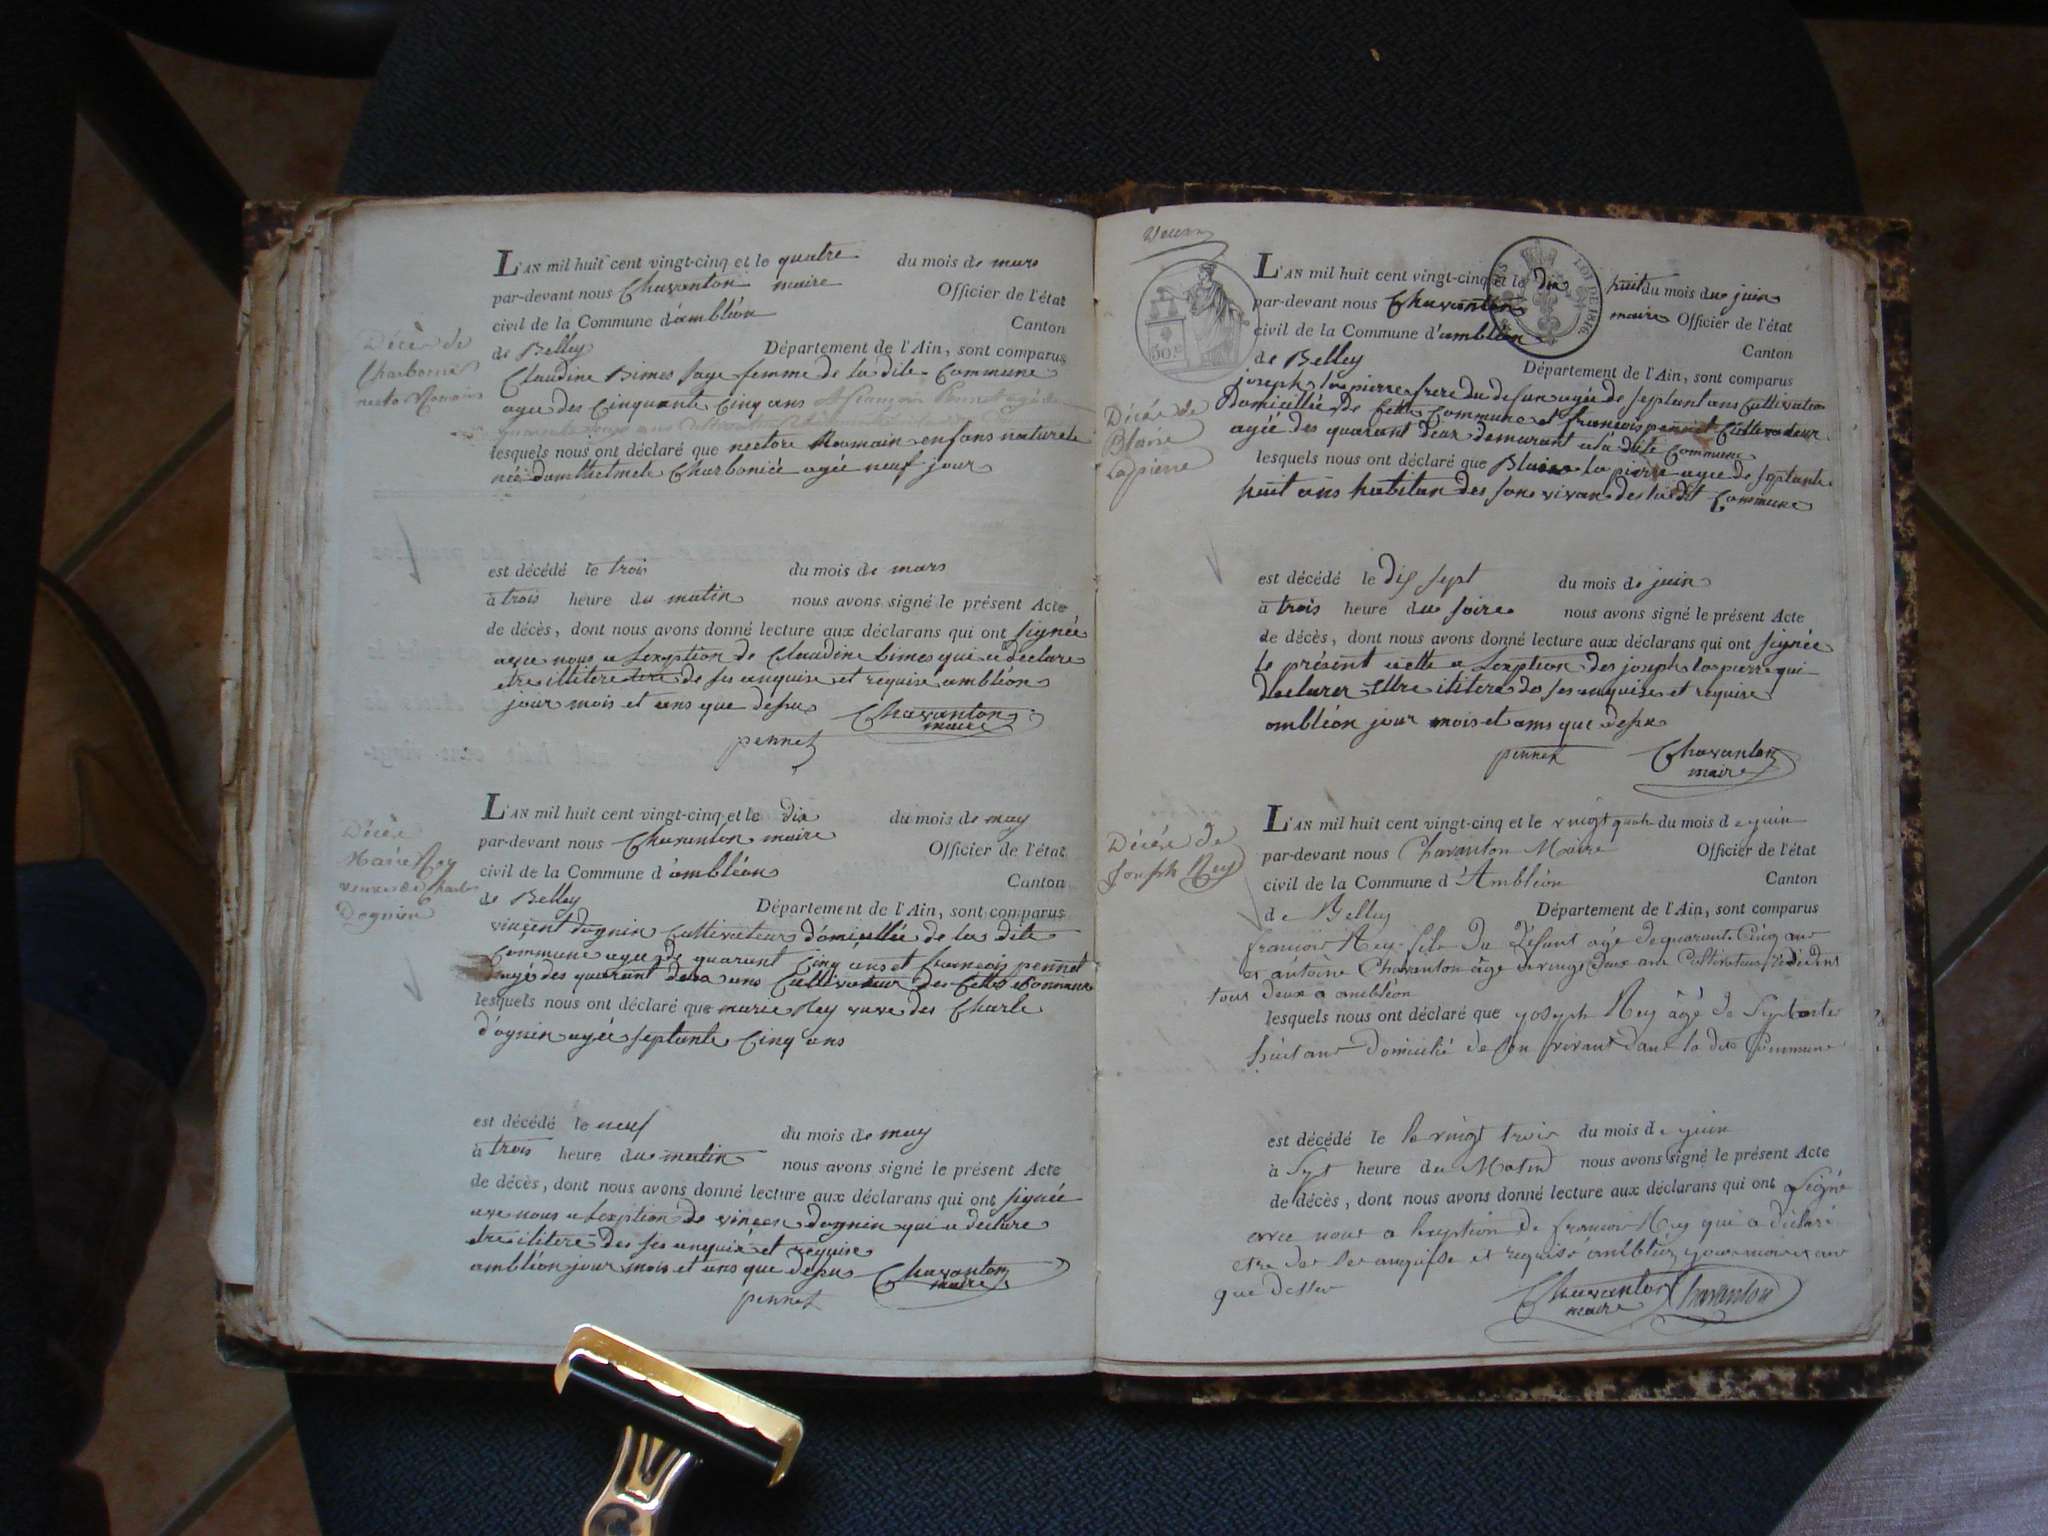 L'AN mil huit cent vingt-cinq et le quatre du mois de mars
par-devant nous Chavanton maire Officier de l'état
civil de la Commune d'ambléon Canton
de Belley Département de l'Ain, sont comparus
Décès de
Charbonié
necto Romain
Claudine Bimes sage femme de la dite Commune
agée des Cinquante Cinq ans
lesquels nous ont déclaré que nectore Romain enfans naturele
née Charboniée agée neuf jour
est décédé le trois du mois de mars
à trois heure du matin nous avons signé le présent Acte
de décès, dont nous avons donné lecture aux déclarans qui ont signée
avec nous a lexption de Claudine bimes qui a declare
etre illitere de ses enquise et requise ambléon
jour mois et ans que desu Chavanton
maire
pennet
L'AN mil huit cent vingt-cinq et le dix du mois de may
par-devant nous Chavanton maire Officier de l'état
civil de la Commune d'ambléon Canton
de Belley Département de l'Ain, sont comparus
Décès
Marie Rey
veuve de Charle
Dognin
vincent dognin Cultivateur domicillié de la dite
Commune agée de quarant Cinq ans et francois pennet
agée des quarant deux ans Cultivateur des Cette Commune
lesquels nous ont déclaré que marie Rey veuve des Charle
d'ognin agée septante Cinq ans
est décédé le neuf du mois de may
à trois heure du matin nous avons signé le présent Acte
de décès, dont nous avons donné lecture aux déclarans qui ont signée
avec nous a lexption de vincen dognin qui a declare
etre ilitere des ses enquise et requise
ambléon jour mois et ans que depu Chavanton
maire
pennet
L'AN mil huit cent vingt-cinq et le dix huit du mois de juin
par-devant nous Chavanton maire Officier de l'état
civil de la Commune d'ambléon Canton
de Belley Département de l'Ain, sont comparus
50 c
LOI DE 1816
Décès de
Blaise
Lapierre
joseph lapierre frere du defun agée de septant ans Cultivateur
domicillié de Cette Commune et francois pennet Cultivateur
agée des quarant deux demurant a la dite Commune
lesquels nous ont déclaré que Blaise la pierre agee de septante
huit ans habitan des son vivan de la dit Commune
est décédé le dix sept du mois de juin
à trois heure du soire nous avons signé le présent Acte
de décès, dont nous avons donné lecture aux déclarans qui ont signée
le présent acte a lexption des joseph la pierre qui
declarer ettre ilitere de ses enquise et requise
ambléon jour mois et ans que desu
pennet Chavanton
maire
L'AN mil huit cent vingt-cinq et le vingt quatre du mois de juin
par-devant nous Chavanton Maire Officier de l'état
civil de la Commune d'Ambléon Canton
de Belley Département de l'Ain, sont comparus
Décès de
Joseph Rey
francois Rey fils du Défunt agé de quarante Cinq ans
et antoine Chavanton âgé de vingt deux ans Cultivateurs
tous deux a ambléon
lesquels nous ont déclaré que yoseph Rey âgé de Septante
huit ans domicilié de son vivant dans la dite Commune
est décédé le le vingt trois du mois de juin
à Sept heure du Matin nous avons signé le présent Acte
de décès, dont nous avons donné lecture aux déclarans qui ont signé
avec nous a lexption de francois Rey qui a déclaré
etre de ce enquise et requise ambléon jour mois et ans
que dessu
Chavanton Chavanton
maire